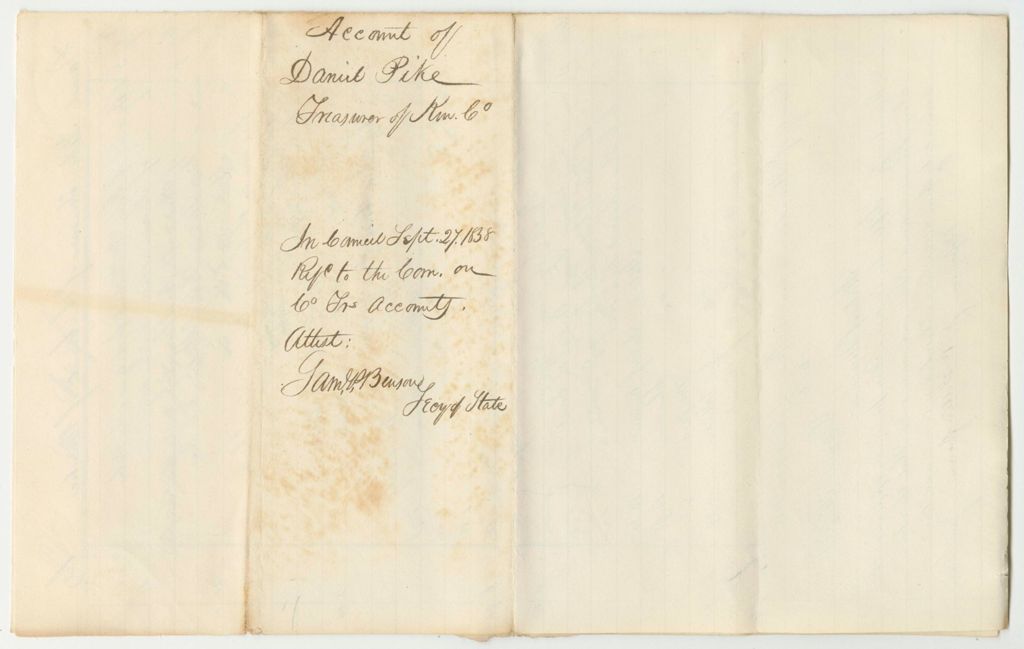 Account of
Daniel Pike
Treasurer of Ken. Co
In Council Sept. 27. 1838
Refd to the Com. on
Co Trs Accounts.
Attest:
Saml P. Benson
Secy of State